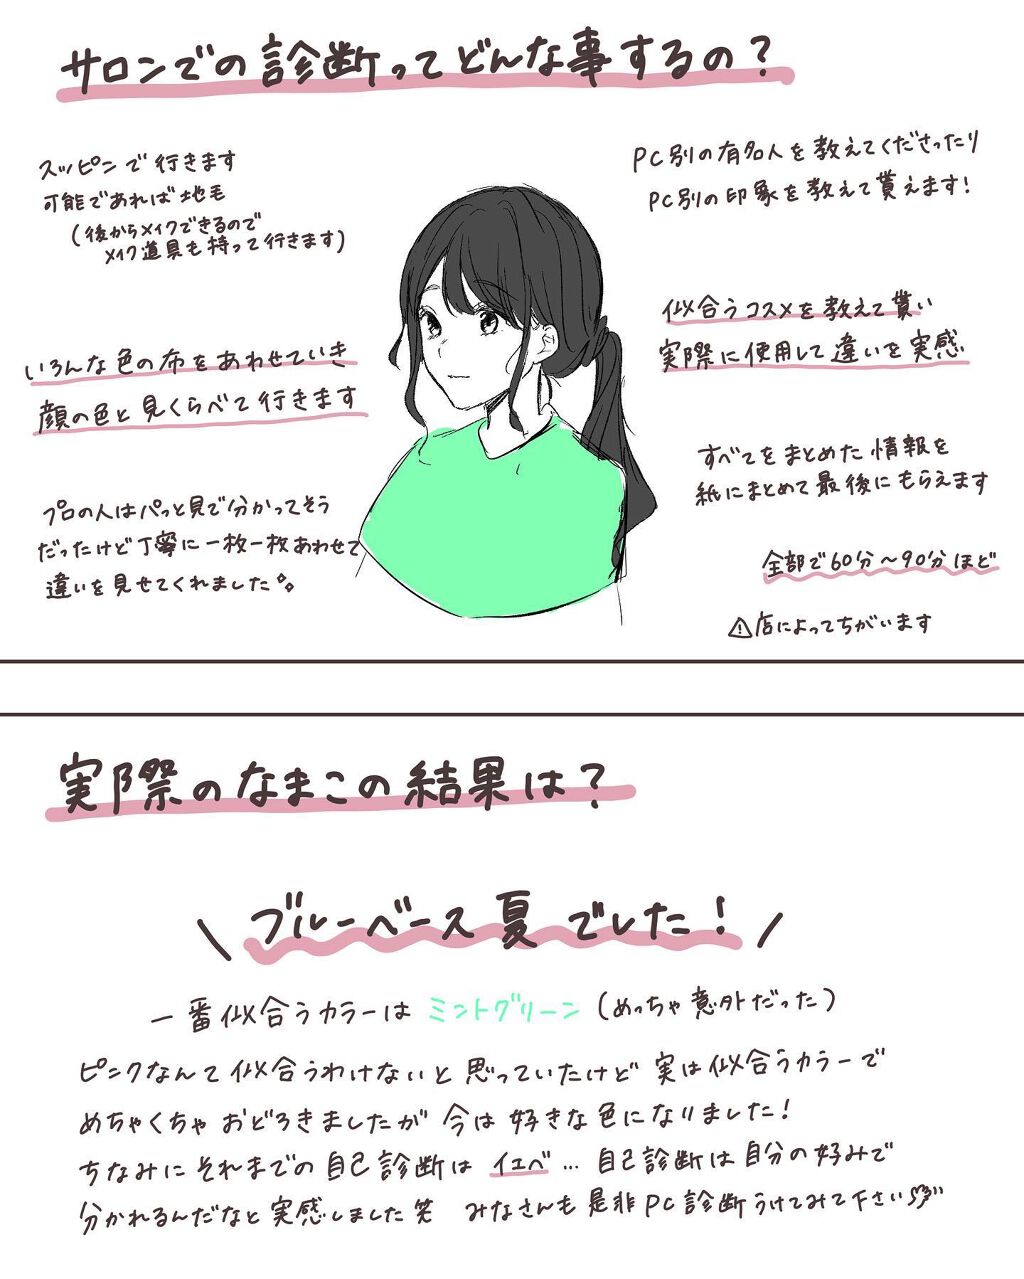 サロンでの診断ってどんな事するの？
スッピンで行きます
可能であれば地毛
(後からメイクできるので
メイク道具も持って行きます)
いろんな色の布をあわせていき
顔の色と見くらべて行きます
プロの人はパっと見で分かってそう
だったけど丁寧に一枚一枚あわせて
違いを見せてくれました。
PC別の有名人を教えてくださったり
PC別の印象を教えて貰えます!
似合うコスメを教えて貰い
実際に使用して違いを実感
すべてをまとめた情報を
紙にまとめて最後にもらえます
全部で60分〜90分ほど
⚠店によってちがいます
実際のなまこの結果は？
\ ブルーベース夏でした! /
一番似合うカラーはミントグリーン(めっちゃ意外だった)
ピンクなんて似合うわけないと思っていたけど実は似合うカラーで
めちゃくちゃおどろきましたが今は好きな色になりました!
ちなみにそれまでの自己診断はイエベ…自己診断は自分の好みで
分かれるんだなと実感しました笑 みなさんも是非PC診断うけてみて下さい